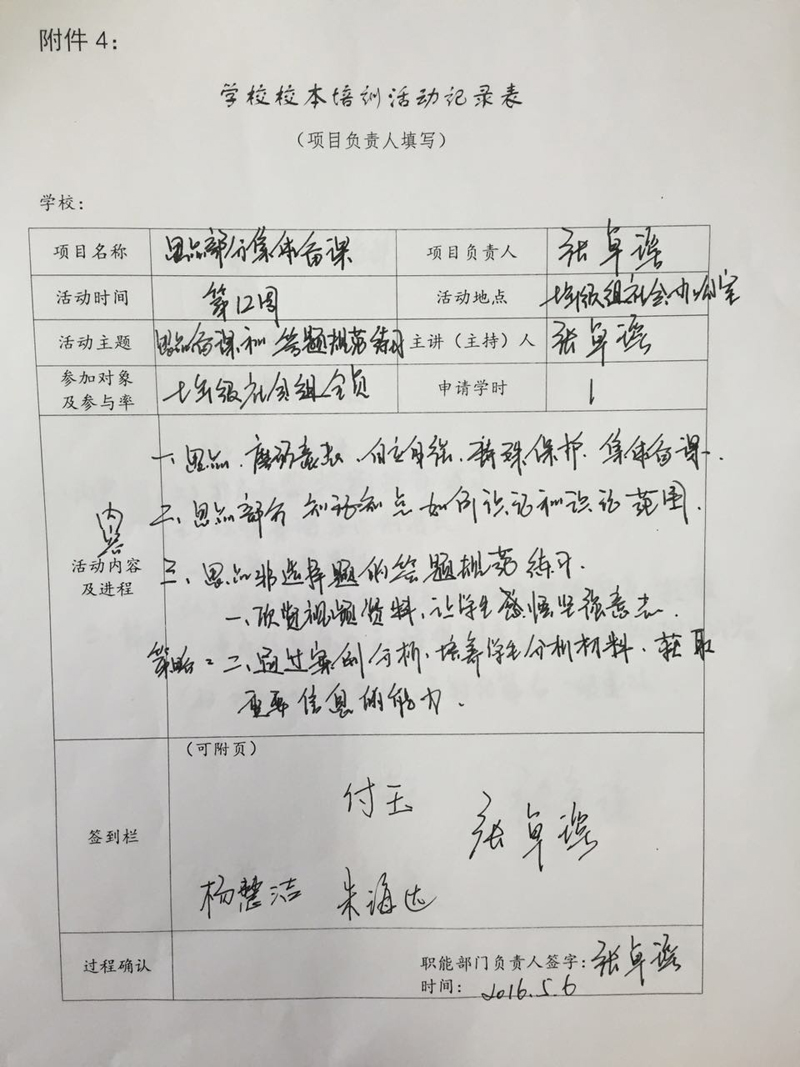 附件4：
学校校本培训活动记录表
（项目负责人填写）
学校：
项目名称 思品部分集体备课 项目负责人 张卓
活动时间 第12周 活动地点 七年级组社会办公室
活动主题 思品备课和答题规范练习 主讲（主持）人 张卓
参加对象及参与率 七年级社会组全员 申请学时 1
内容
活动内容及进程
一、思品、磨砺意志、自立自强、特殊保护、集体备课.
二、思品部分知识点如何识记和识记范围.
三、思品非选择题的答题规范练习.
一、欣赏视频资料，让学生感悟坚强意志.
策略：二、通过案例分析、培养学生分析材料、获取
重要信息的能力.
（可附页）
签到栏
付玉
张卓
杨慧洁 朱海达
过程确认
职能部门负责人签字：张卓
时间： 2016.5.6